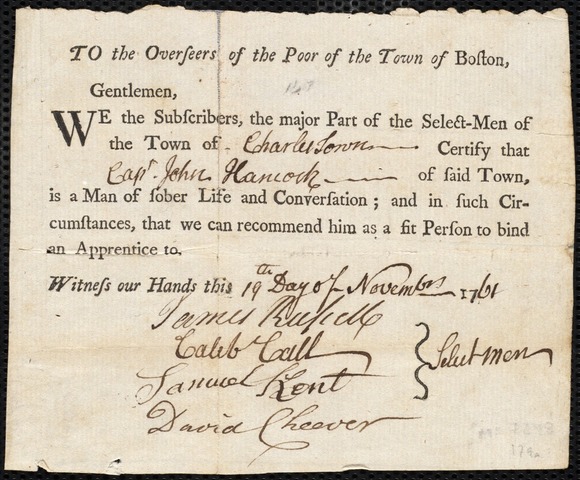 TO the Overſeers of the Poor of the Town of Boſton,
Gentlemen,
WE the Subſcribers, the major Part of the Select-Men of
the Town of Charlestown Certify that
Capt. John Hancock of ſaid Town,
is a Man of ſober Life and Converſation; and in ſuch Cir-
cumſtances, that we can recommend him as a fit Perſon to bind
an Apprentice to.
Witneſs our Hands this 19th Day of Novembr 1761
James Russell
Caleb Call
Samuel Kent
David Cheever
Select men